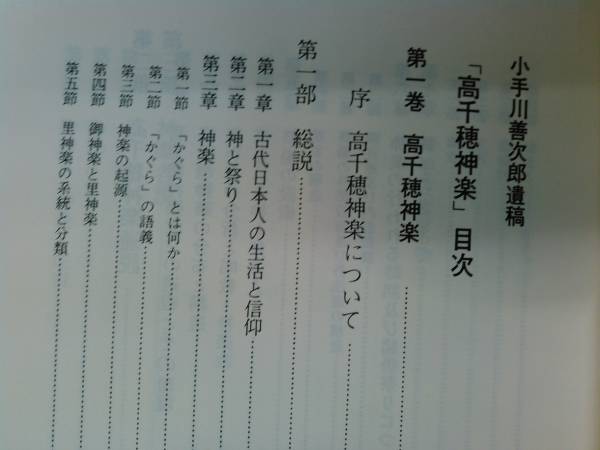 小手川善次郎遺稿
「高千穂神楽」目次
第一巻 高千穂神楽
序 高千穂神楽について
第一部 総説
第一章 古代日本人の生活と信仰
第二章 神と祭り
第三章 神楽
第一節 「かぐら」とは何か
第二節 「かぐら」の語義
第三節 神楽の起源
第四節 御神楽と里神楽
第五節 里神楽の系統と分類